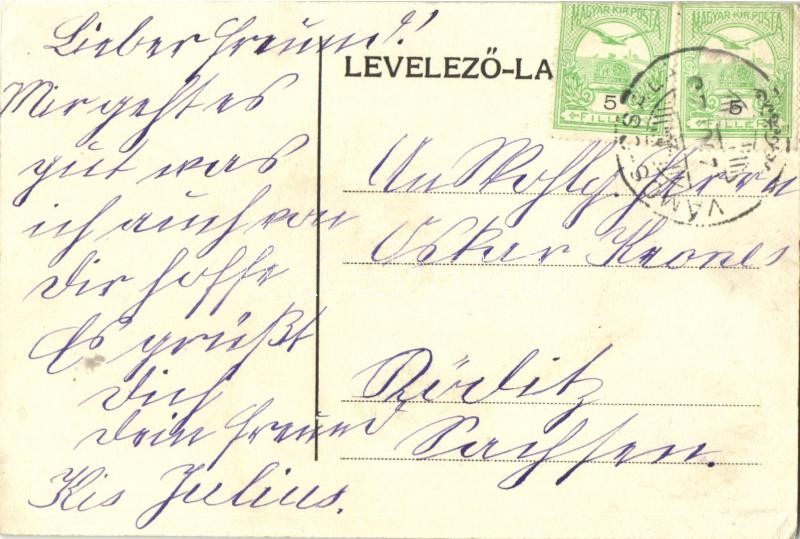 Lieber Freund!
Mir geht es
gut was
ich auch von
Dir hoffe
Es grüßt
Dich
dein Freund
Kis Julius.
LEVELEZŐ-LA
MAGYAR KIR. POSTA
5
FILLÉR
MAGYAR KIR. POSTA
5
FILLÉR
An Wohlg. Herrn
Oskar Krones
Rödlitz
Sachsen.